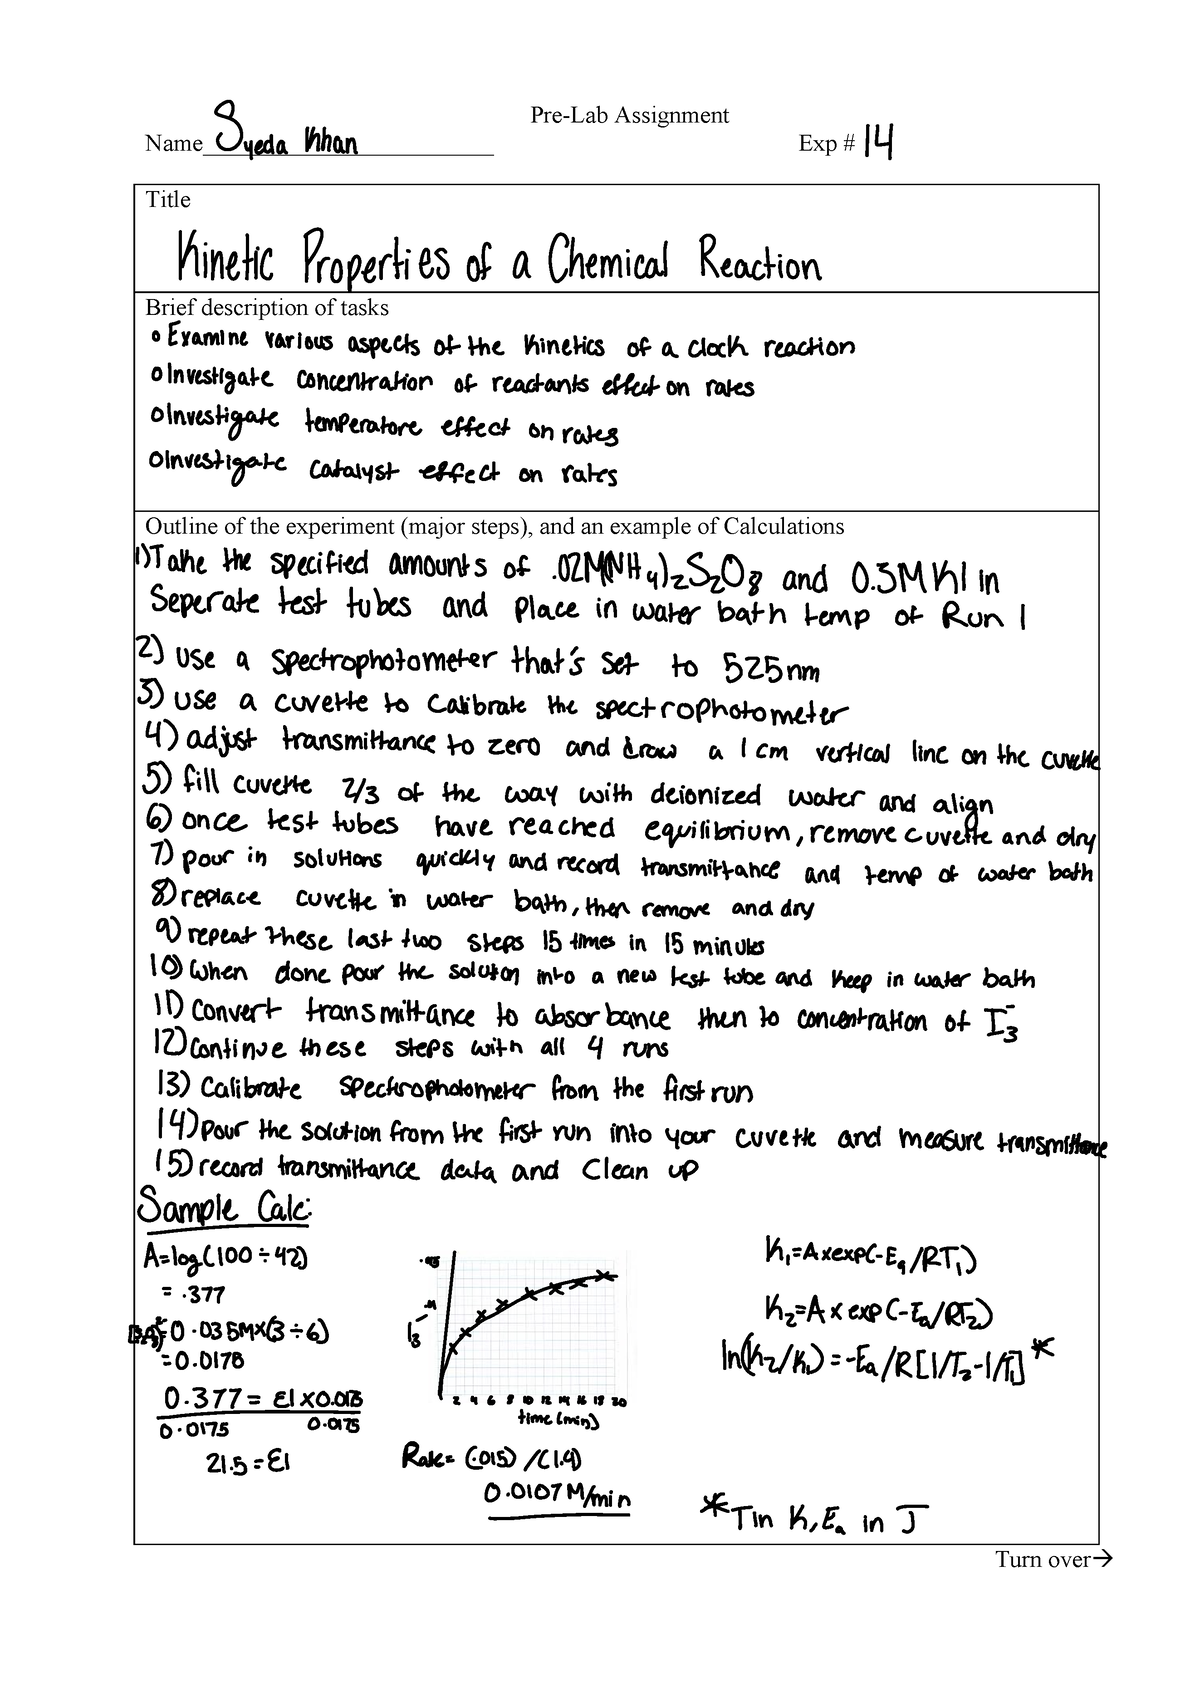 Pre-Lab Assignment
Name Syeda Khan Exp # 14
Title
Kinetic Properties of a Chemical Reaction
Brief description of tasks
o Examine various aspects of the kinetics of a clock reaction
o Investigate concentration of reactants effect on rates
o Investigate temperature effect on rates
o Investigate catalyst effect on rates
Outline of the experiment (major steps), and an example of Calculations
1) Take the specified amounts of .02M(NH4)2S2O8 and 0.5M KI in
Seperate test tubes and place in water bath temp of Run 1
2) Use a spectrophotometer that's set to 525nm
3) use a cuvette to calibrate the spectrophotometer
4) adjust transmittance to zero and draw a 1 cm vertical line on the cuvette
5) fill cuvette 2/3 of the way with deionized water and align
6) once test tubes have reached equilibrium, remove cuvette and dry
7) pour in solutions quickly and record transmittance and temp of water bath
8) replace cuvette in water bath, then remove and dry
9) repeat these last two steps 15 times in 15 minutes
10) When done pour the soluton into a new test tube and keep in water bath
11) Convert transmittance to absorbance then to concentration of I3-
12) Continue these steps with all 4 runs
13) Calibrate spectrophotometer from the first run
14) Pour the solution from the first run into your cuvette and measure transmittance
15) record transmittance data and Clean up
Sample Calc:
A=log(100÷42)
= .377
=0.035M×(3÷6)
=0.0178
0.377 = εl × 0.0175
0.0175 0.0175
21.5=εl
I3-
2 4 6 8 10 12 14 16 18 20
time (min)
Rate= (.015)/(1.4)
0.0107 M/min
K1=A×exp(-Ea/RT1)
K2=A×exp(-Ea/RT2)
ln(K2/K1)=-Ea/R[1/T2-1/T1]*
*T in K, Ea in J
Turn over→